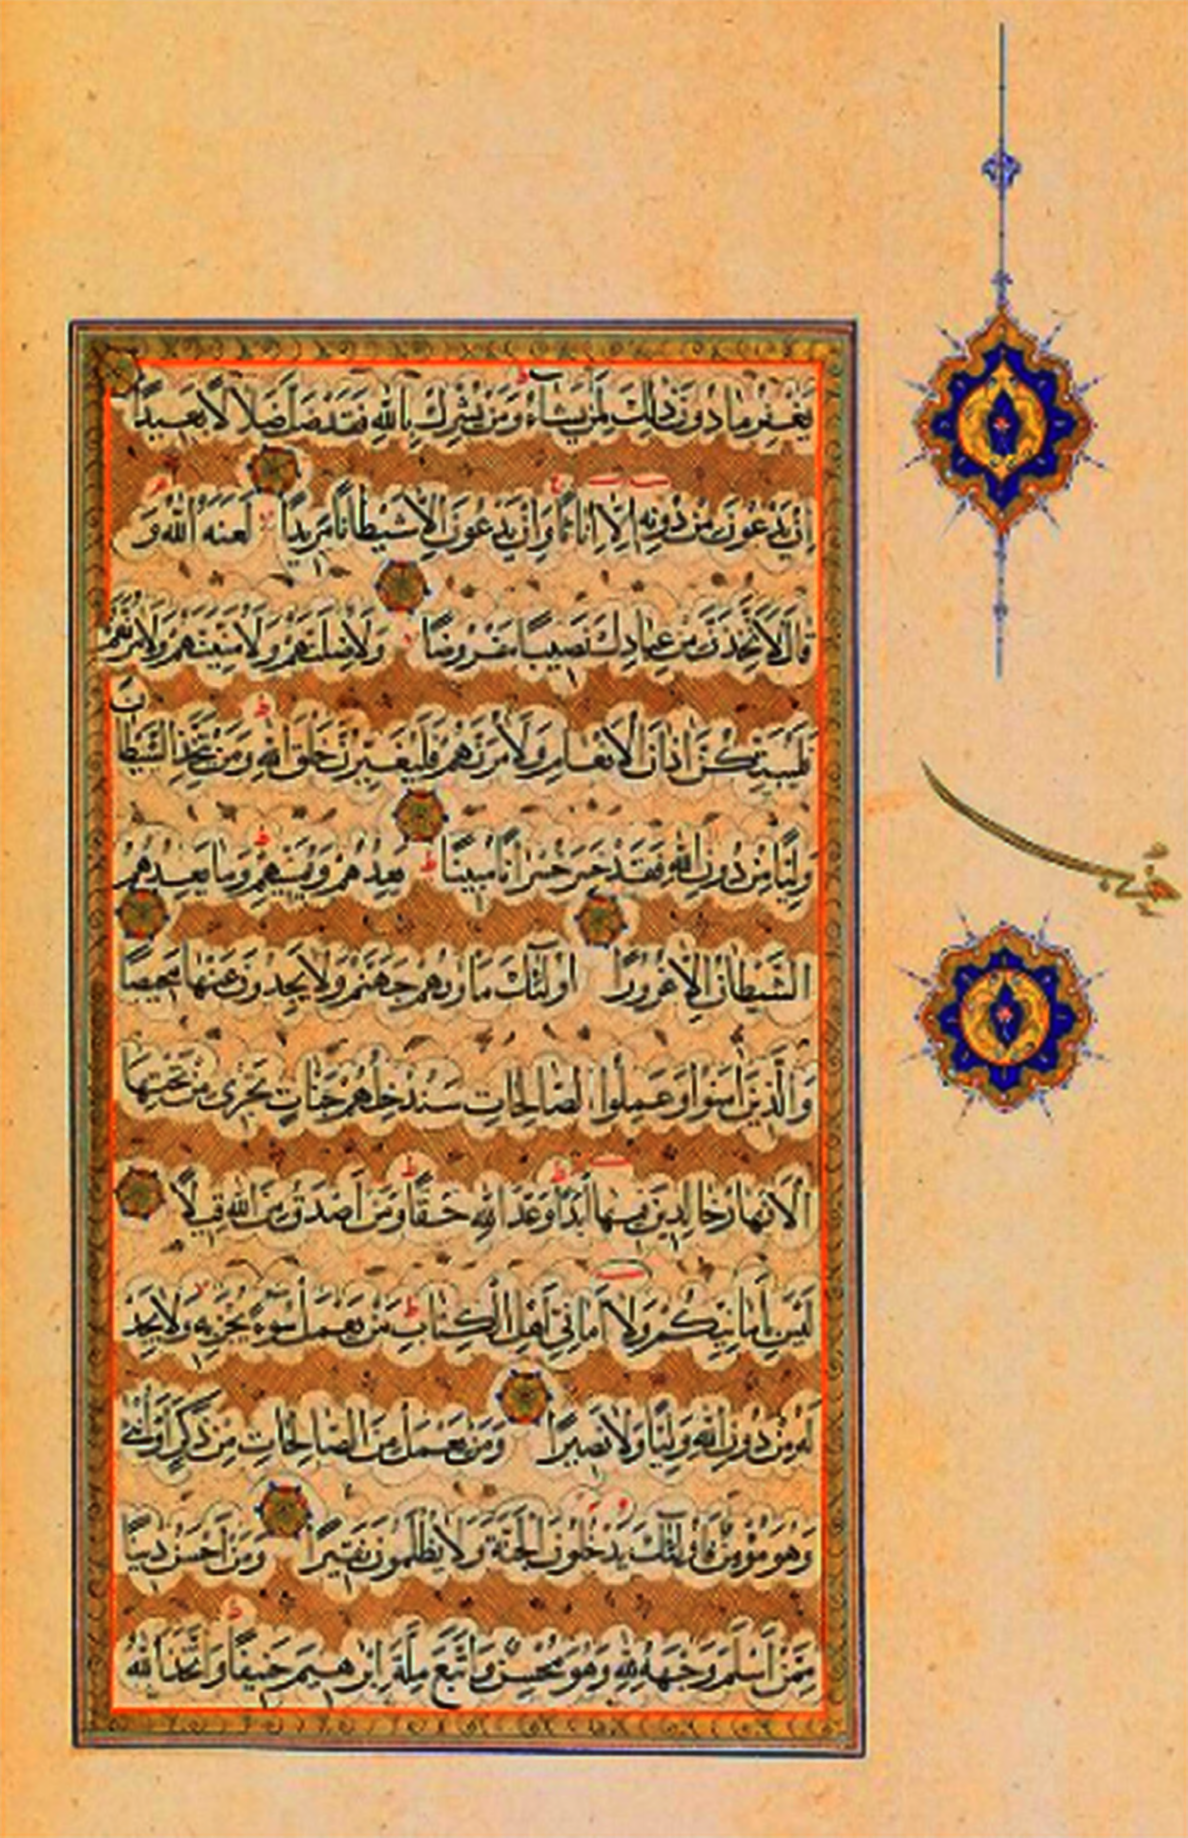 يَغْفِرُ مَا دُونَ ذَٰلِكَ لِمَنْ يَشَاءُ وَمَنْ يُشْرِكْ بِاللَّهِ فَقَدْ ضَلَّ ضَلَالًا بَعِيدًا
إِنْ يَدْعُونَ مِنْ دُونِهِ إِلَّا إِنَاثًا وَإِنْ يَدْعُونَ إِلَّا شَيْطَانًا مَرِيدًا لَعَنَهُ اللَّهُ وَ
قَالَ لَأَتَّخِذَنَّ مِنْ عِبَادِكَ نَصِيبًا مَفْرُوضًا وَلَأُضِلَّنَّهُمْ وَلَأُمَنِّيَنَّهُمْ وَلَآمُرَنَّهُمْ
فَلَيُبَتِّكُنَّ آذَانَ الْأَنْعَامِ وَلَآمُرَنَّهُمْ فَلَيُغَيِّرُنَّ خَلْقَ اللَّهِ وَمَنْ يَتَّخِذِ الشَّيْطَانَ
وَلِيًّا مِنْ دُونِ اللَّهِ فَقَدْ خَسِرَ خُسْرَانًا مُبِينًا يَعِدُهُمْ وَيُمَنِّيهِمْ وَمَا يَعِدُهُمُ
الشَّيْطَانُ إِلَّا غُرُورًا أُولَٰئِكَ مَأْوَاهُمْ جَهَنَّمُ وَلَا يَجِدُونَ عَنْهَا مَحِيصًا
وَالَّذِينَ آمَنُوا وَعَمِلُوا الصَّالِحَاتِ سَنُدْخِلُهُمْ جَنَّاتٍ تَجْرِي مِنْ تَحْتِهَا
الْأَنْهَارُ خَالِدِينَ فِيهَا أَبَدًا وَعْدَ اللَّهِ حَقًّا وَمَنْ أَصْدَقُ مِنَ اللَّهِ قِيلًا
لَيْسَ بِأَمَانِيِّكُمْ وَلَا أَمَانِيِّ أَهْلِ الْكِتَابِ مَنْ يَعْمَلْ سُوءًا يُجْزَ بِهِ وَلَا يَجِدْ
لَهُ مِنْ دُونِ اللَّهِ وَلِيًّا وَلَا نَصِيرًا وَمَنْ يَعْمَلْ مِنَ الصَّالِحَاتِ مِنْ ذَكَرٍ أَوْ أُنْثَىٰ
وَهُوَ مُؤْمِنٌ فَأُولَٰئِكَ يَدْخُلُونَ الْجَنَّةَ وَلَا يُظْلَمُونَ نَقِيرًا وَمَنْ أَحْسَنُ دِينًا
مِمَّنْ أَسْلَمَ وَجْهَهُ لِلَّهِ وَهُوَ مُحْسِنٌ وَاتَّبَعَ مِلَّةَ إِبْرَاهِيمَ حَنِيفًا وَاتَّخَذَ اللَّهُ